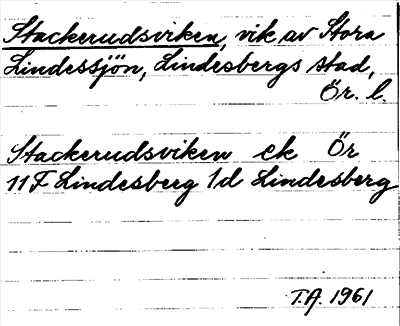 Stackerudsviken, vik av Stora
Lindessjön, Lindesbergs stad,
Ör. l.
Stackerudsviken ek Ör
11F Lindesberg 1d Lindesberg
T.A. 1961